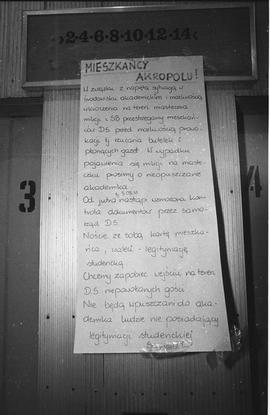 2·4·6·8·10·12·14
MIESZKAŃCY
AKROPOLU!
W związku z napiętą sytuacją w
środowisku akademickim i możliwością
wkroczenia na teren miasteczka
milicji i SB przestrzegamy mieszkań-
ców DS. przed możliwością prowo-
kacji tj rzucania butelek i
płonących gazet. W wypadku
pojawienia się milicji na miaste-
czku prosimy o nieopuszczanie
akademika.
Od jutra nastąpi wzmożona kon-
trola dokumentów przez samo-
rząd DS.
Noście ze sobą kartę mieszka-
ńca, i legitymację
studencką
Chcemy zapobiec wejściu na teren
DS. niepowołanych gości
Nie będą wpuszczani do aka-
demika ludzie nie posiadający
legitymacji studenckiej
3
4